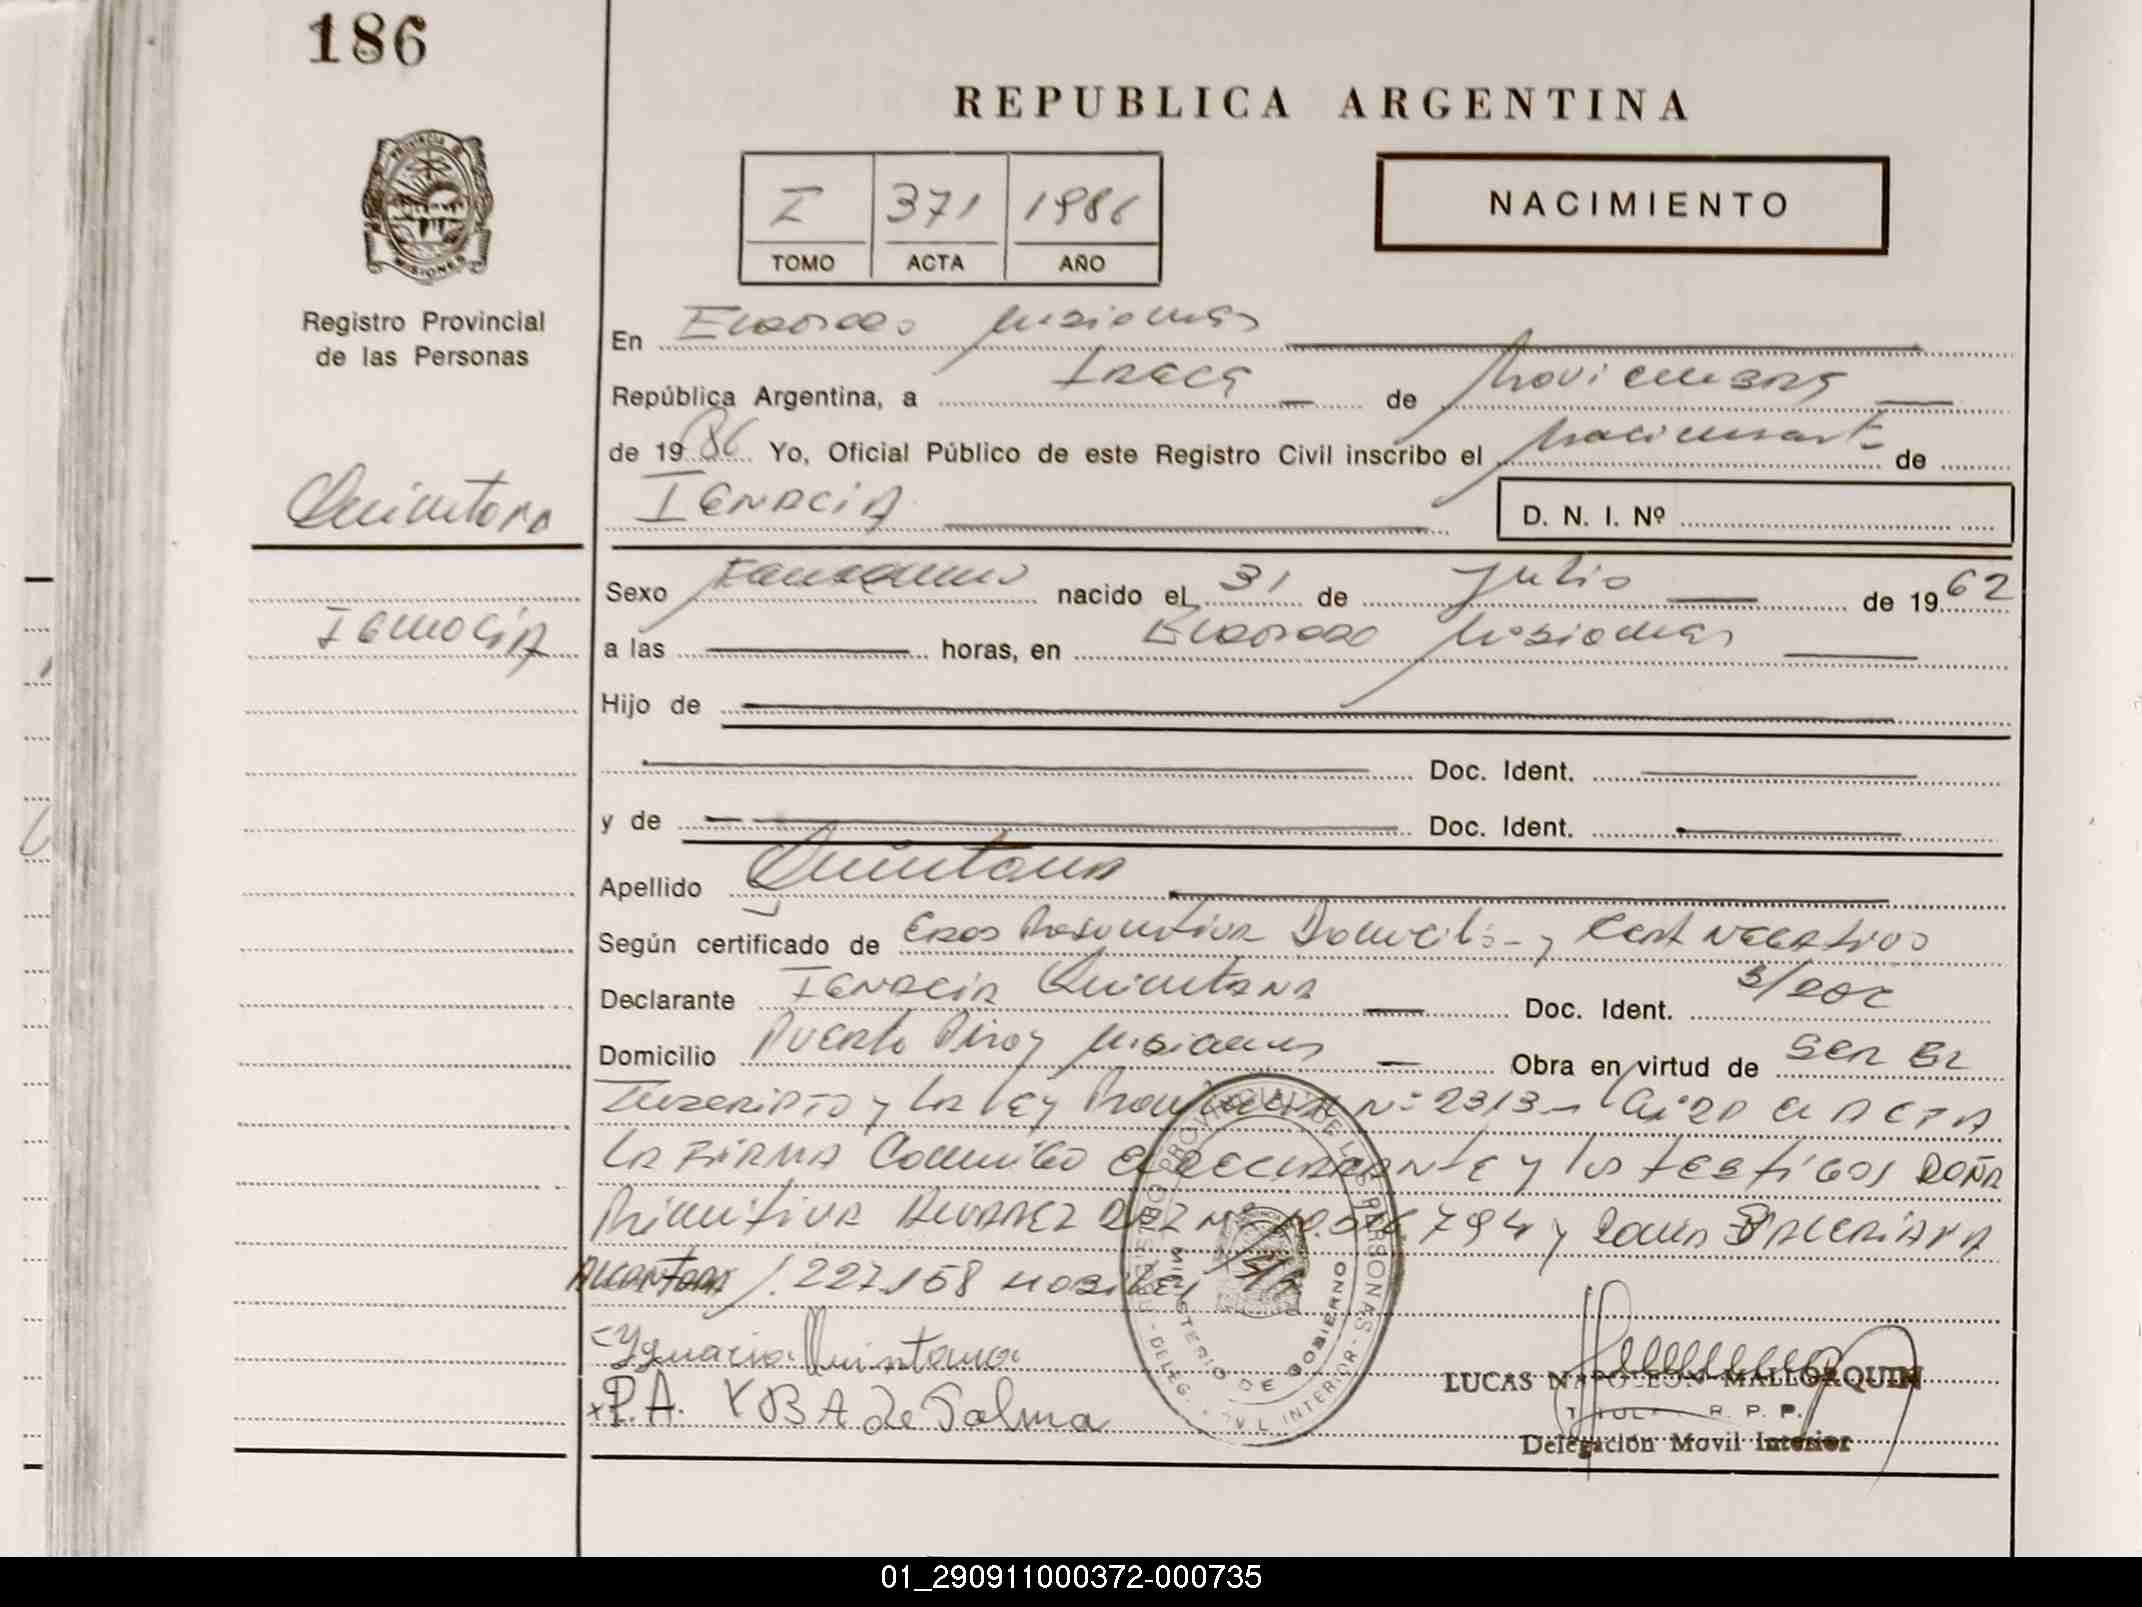 186
REPUBLICA ARGENTINA
I 371 1986
TOMO ACTA AÑO
NACIMIENTO
PROVINCIA DE MISIONES
Registro Provincial
de las Personas
En Eldorado Misiones
República Argentina, a Trece de Noviembre
de 1986 Yo, Oficial Público de este Registro Civil inscribo el Nacimiento de
Quintana
IGNACIA
D. N. I. Nº
Ignacia
Sexo Femenino nacido el 31 de Julio de 1962
a las horas, en Eldorado Misiones
Hijo de
Doc. Ident.
y de Doc. Ident.
Apellido Quintana
Según certificado de Edad Presuntiva Domicilio y Cert Negativo
Declarante IGNACIA Quintana Doc. Ident.
Domicilio Puerto Piray Misiones Obra en virtud de SER EL
Inscripto y la Ley Provincial Nº 2313 El ACTA
La FIRMA Conmigo el declarante y los testigos DOÑA
Primitiva ALVAREZ 794 y Doña VALERIANA
Alcantara 227.158
Ygnacia Quintana
P.A. YBA de Palma
REGISTRO PROVINCIAL DE LAS PERSONAS
MINISTERIO DE GOBIERNO
DELEG. CIVIL INTERIOR
LUCAS NAPOLEON MALLORQUIN
TITULAR R. P. P.
Delegación Movil Interior
01_290911000372-000735